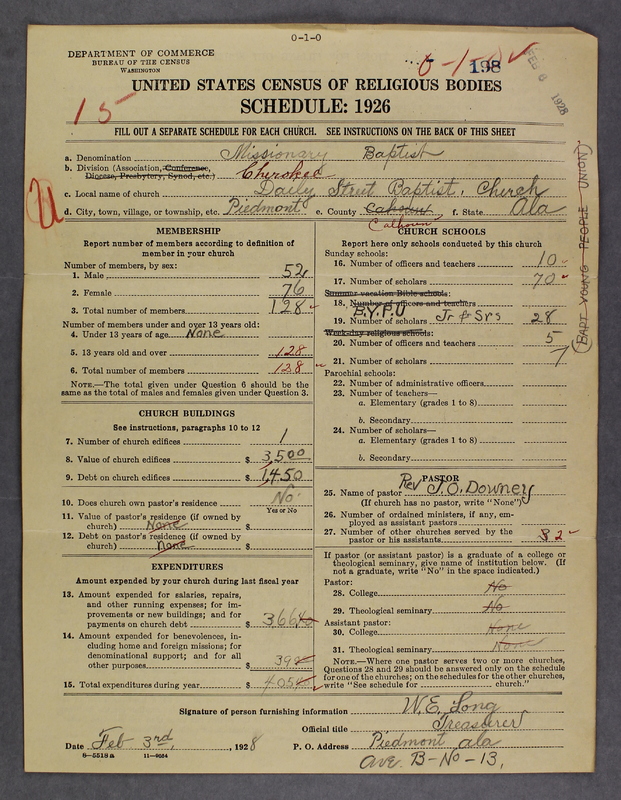 0-1-0
DEPARTMENT OF COMMERCE
BUREAU OF THE CENSUS
WASHINGTON
198
FEB 6 1928
15
UNITED STATES CENSUS OF RELIGIOUS BODIES
SCHEDULE: 1926
FILL OUT A SEPARATE SCHEDULE FOR EACH CHURCH. SEE INSTRUCTIONS ON THE BACK OF THIS SHEET
a. Denomination Missionary Baptist
b. Division (Association, Conference, Diocese, Presbytery, Synod, etc.) Cherokee
c. Local name of church Daily Street Baptist, Church
d. City, town, village, or township, etc. Piedmont e. County Calhoun f. State Ala
Calhoun
MEMBERSHIP
Report number of members according to definition of
member in your church
Number of members, by sex:
1. Male 52
2. Female 76
3. Total number of members 128
Number of members under and over 13 years old:
4. Under 13 years of age None
5. 13 years old and over 128
6. Total number of members 128
NOTE.—The total given under Question 6 should be the
same as the total of males and females given under Question 3.
CHURCH BUILDINGS
See instructions, paragraphs 10 to 12
7. Number of church edifices 1
8. Value of church edifices $ 3,500
9. Debt on church edifices $ 1,450
10. Does church own pastor's residence No
Yes or No
11. Value of pastor's residence (if owned by
church) None $
12. Debt on pastor's residence (if owned by
church) None $
EXPENDITURES
Amount expended by your church during last fiscal year
13. Amount expended for salaries, repairs,
and other running expenses; for im-
provements or new buildings; and for
payments on church debt $ 366
14. Amount expended for benevolences, in-
cluding home and foreign missions; for
denominational support; and for all
other purposes $ 39
15. Total expenditures during year $ 405
CHURCH SCHOOLS
Report here only schools conducted by this church
Sunday schools:
16. Number of officers and teachers 10
17. Number of scholars 70
Summer vacation Bible schools:
18. Number of officers and teachers
B.Y.P.U
19. Number of scholars Jr & Srs 28
Week-day religious schools:
20. Number of officers and teachers 5
21. Number of scholars 7
Parochial schools:
22. Number of administrative officers
23. Number of teachers—
a. Elementary (grades 1 to 8)
b. Secondary
24. Number of scholars—
a. Elementary (grades 1 to 8)
b. Secondary
PASTOR
25. Name of pastor Rev J. O. Downey
(If church has no pastor, write "None")
26. Number of ordained ministers, if any, em-
ployed as assistant pastors
27. Number of other churches served by the
pastor or his assistants 2
If pastor (or assistant pastor) is a graduate of a college or
theological seminary, give name of institution below. (If
not a graduate, write "No" in the space indicated.)
Pastor:
28. College No
29. Theological seminary No
Assistant pastor:
30. College None
31. Theological seminary None
NOTE.—Where one pastor serves two or more churches,
Questions 28 and 29 should be answered only on the schedule
for one of the churches; on the schedules for the other churches,
write "See schedule for church."
(BAPT YOUNG PEOPLE UNION)
Signature of person furnishing information W. E. Long
Official title Treasurer
Date Feb 3rd, , 1928 P. O. Address Piedmont ala
8—5518a 11—9684
Ave. B-No-13,